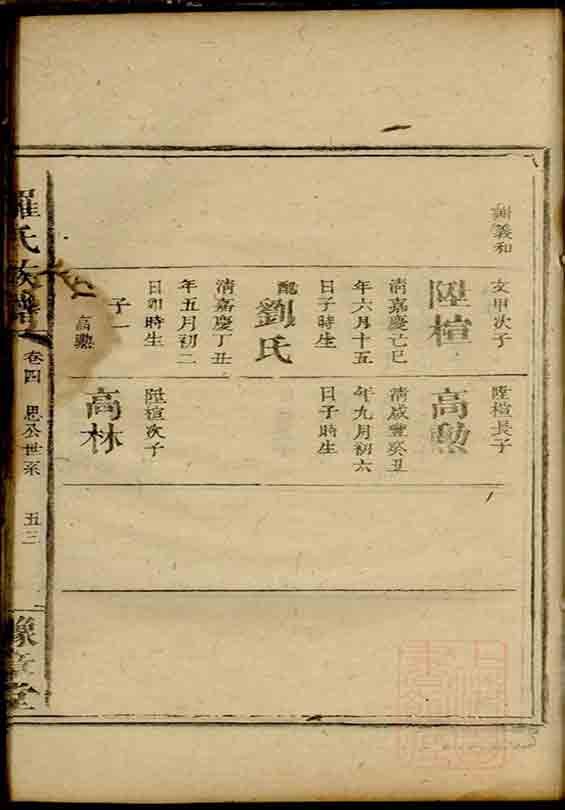 義和
文甲次子
陞楦
清嘉慶己巳
年六月十五
日子時生
配
劉氏
清嘉慶丁丑
年五月初二
日卯時生
子一
高勲
陞楦長子
高勲
清咸豐癸丑
年九月初六
日子時生
陞楦次子
高林
羅氏族譜
卷四
思公世系
五三
豫章堂